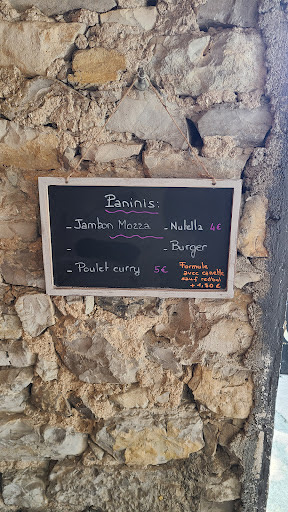 Paninis:
- Jambon Mozza
- Nutella 4€
-
- Burger
- Poulet curry 5€
Formule
avec canette
sauf redbull
+ 1,80€